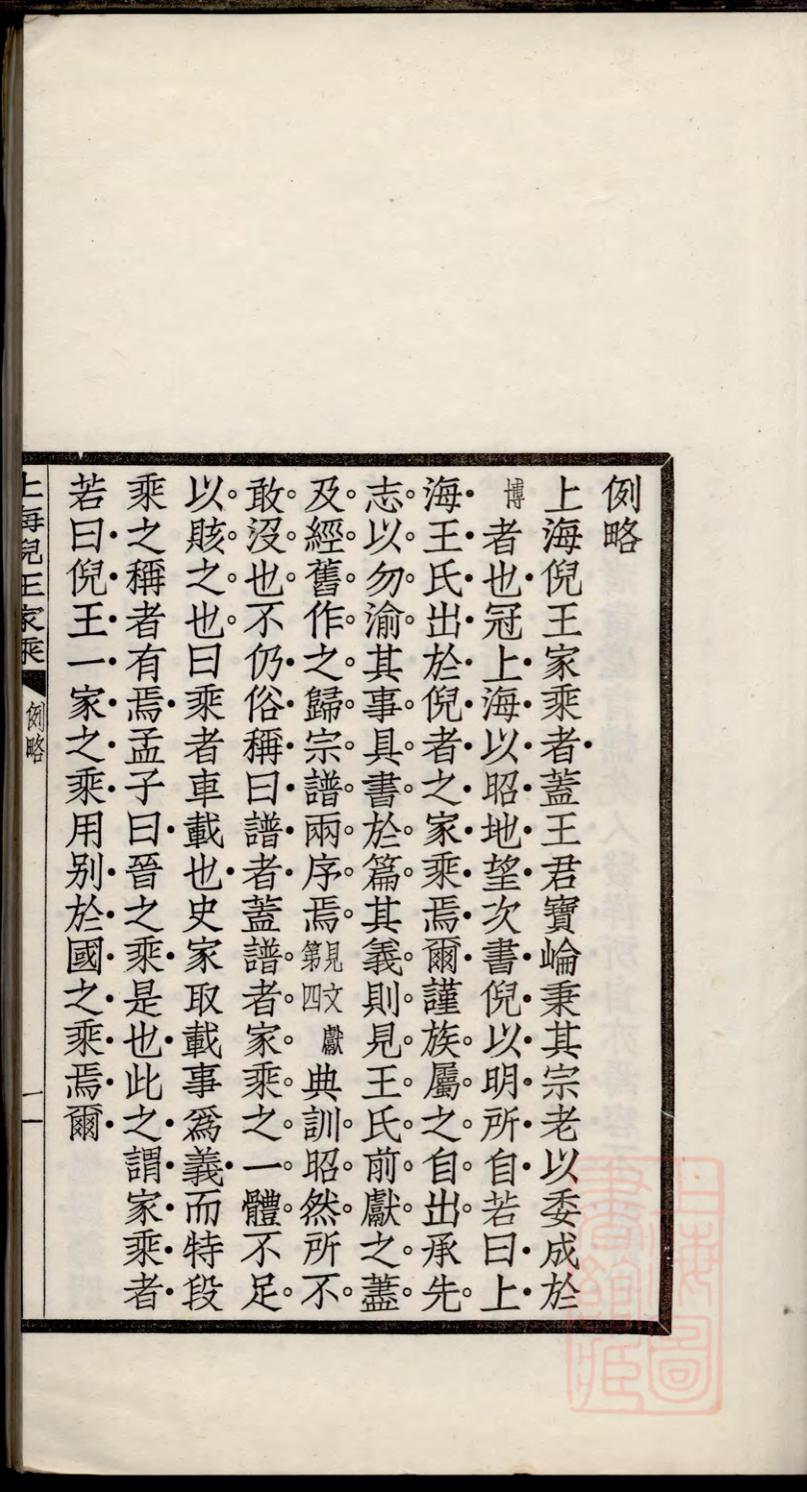 例略
上海倪王家乘者蓋王君寶崘秉其宗老以委成於
博者也冠上海以昭地望次書倪以明所自若曰上
海王氏出於倪者之家乘焉爾謹族屬之自出承先
志以勿渝其事具書於篇其義則見王氏前獻之藎
及經舊作之歸宗譜兩序焉見文獻第四典訓昭然所不
敢沒也不仍俗稱曰譜者蓋譜者家乘之一體不足
以賅之也曰乘者車載也史家取載事爲義而特段
乘之稱者有焉孟子曰晉之乘是也此之謂家乘者
若曰倪王一家之乘用别於國之乘焉爾
上海倪王家乘 例略 一
上海圖書館藏